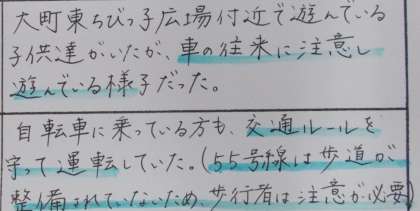 大町東ちびっ子広場付近で遊んでいる
子供達がいたが、車の往来に注意し
遊んでいる様子だった。
自転車に乗っている方も、交通ルールを
守って運転していた。(55号線は歩道が
整備されていないため、歩行者は注意が必要)